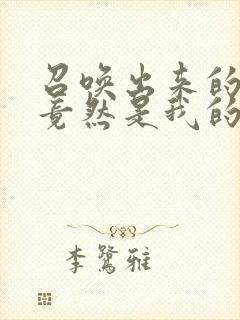 召唤出来的
竟然是我的
李鹭雅